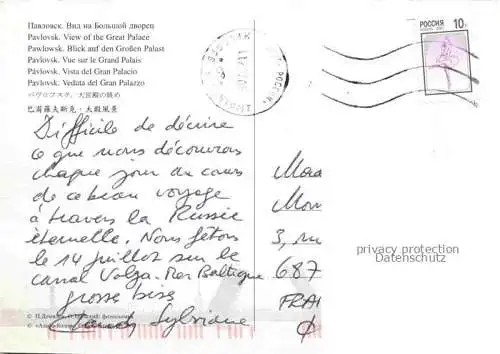 Павловск. Вид на Большой дворец
Pavlovsk. View of the Great Palace
Pawlowsk. Blick auf den Großen Palast
Pavlovsk. Vue sur le Grand Palais
Pávlovsk. Vista del Gran Palacio
Pavlovsk. Veduta del Gran Palazzo
パヴロフスク。大宮殿の眺め
巴甫羅夫斯克・大殿風景
РОССИЯ 10р
Difficile de décrire
ce que nous découvrons
chaque jour au cours
de ce beau voyage
à travers la Russie
éternelle. Nous fêtons
le 14 juillet sur le
canal Volga-Mer Baltique
grosse bises
Sylviane
3, ru
687
FRA
privacy protection
Datenschutz